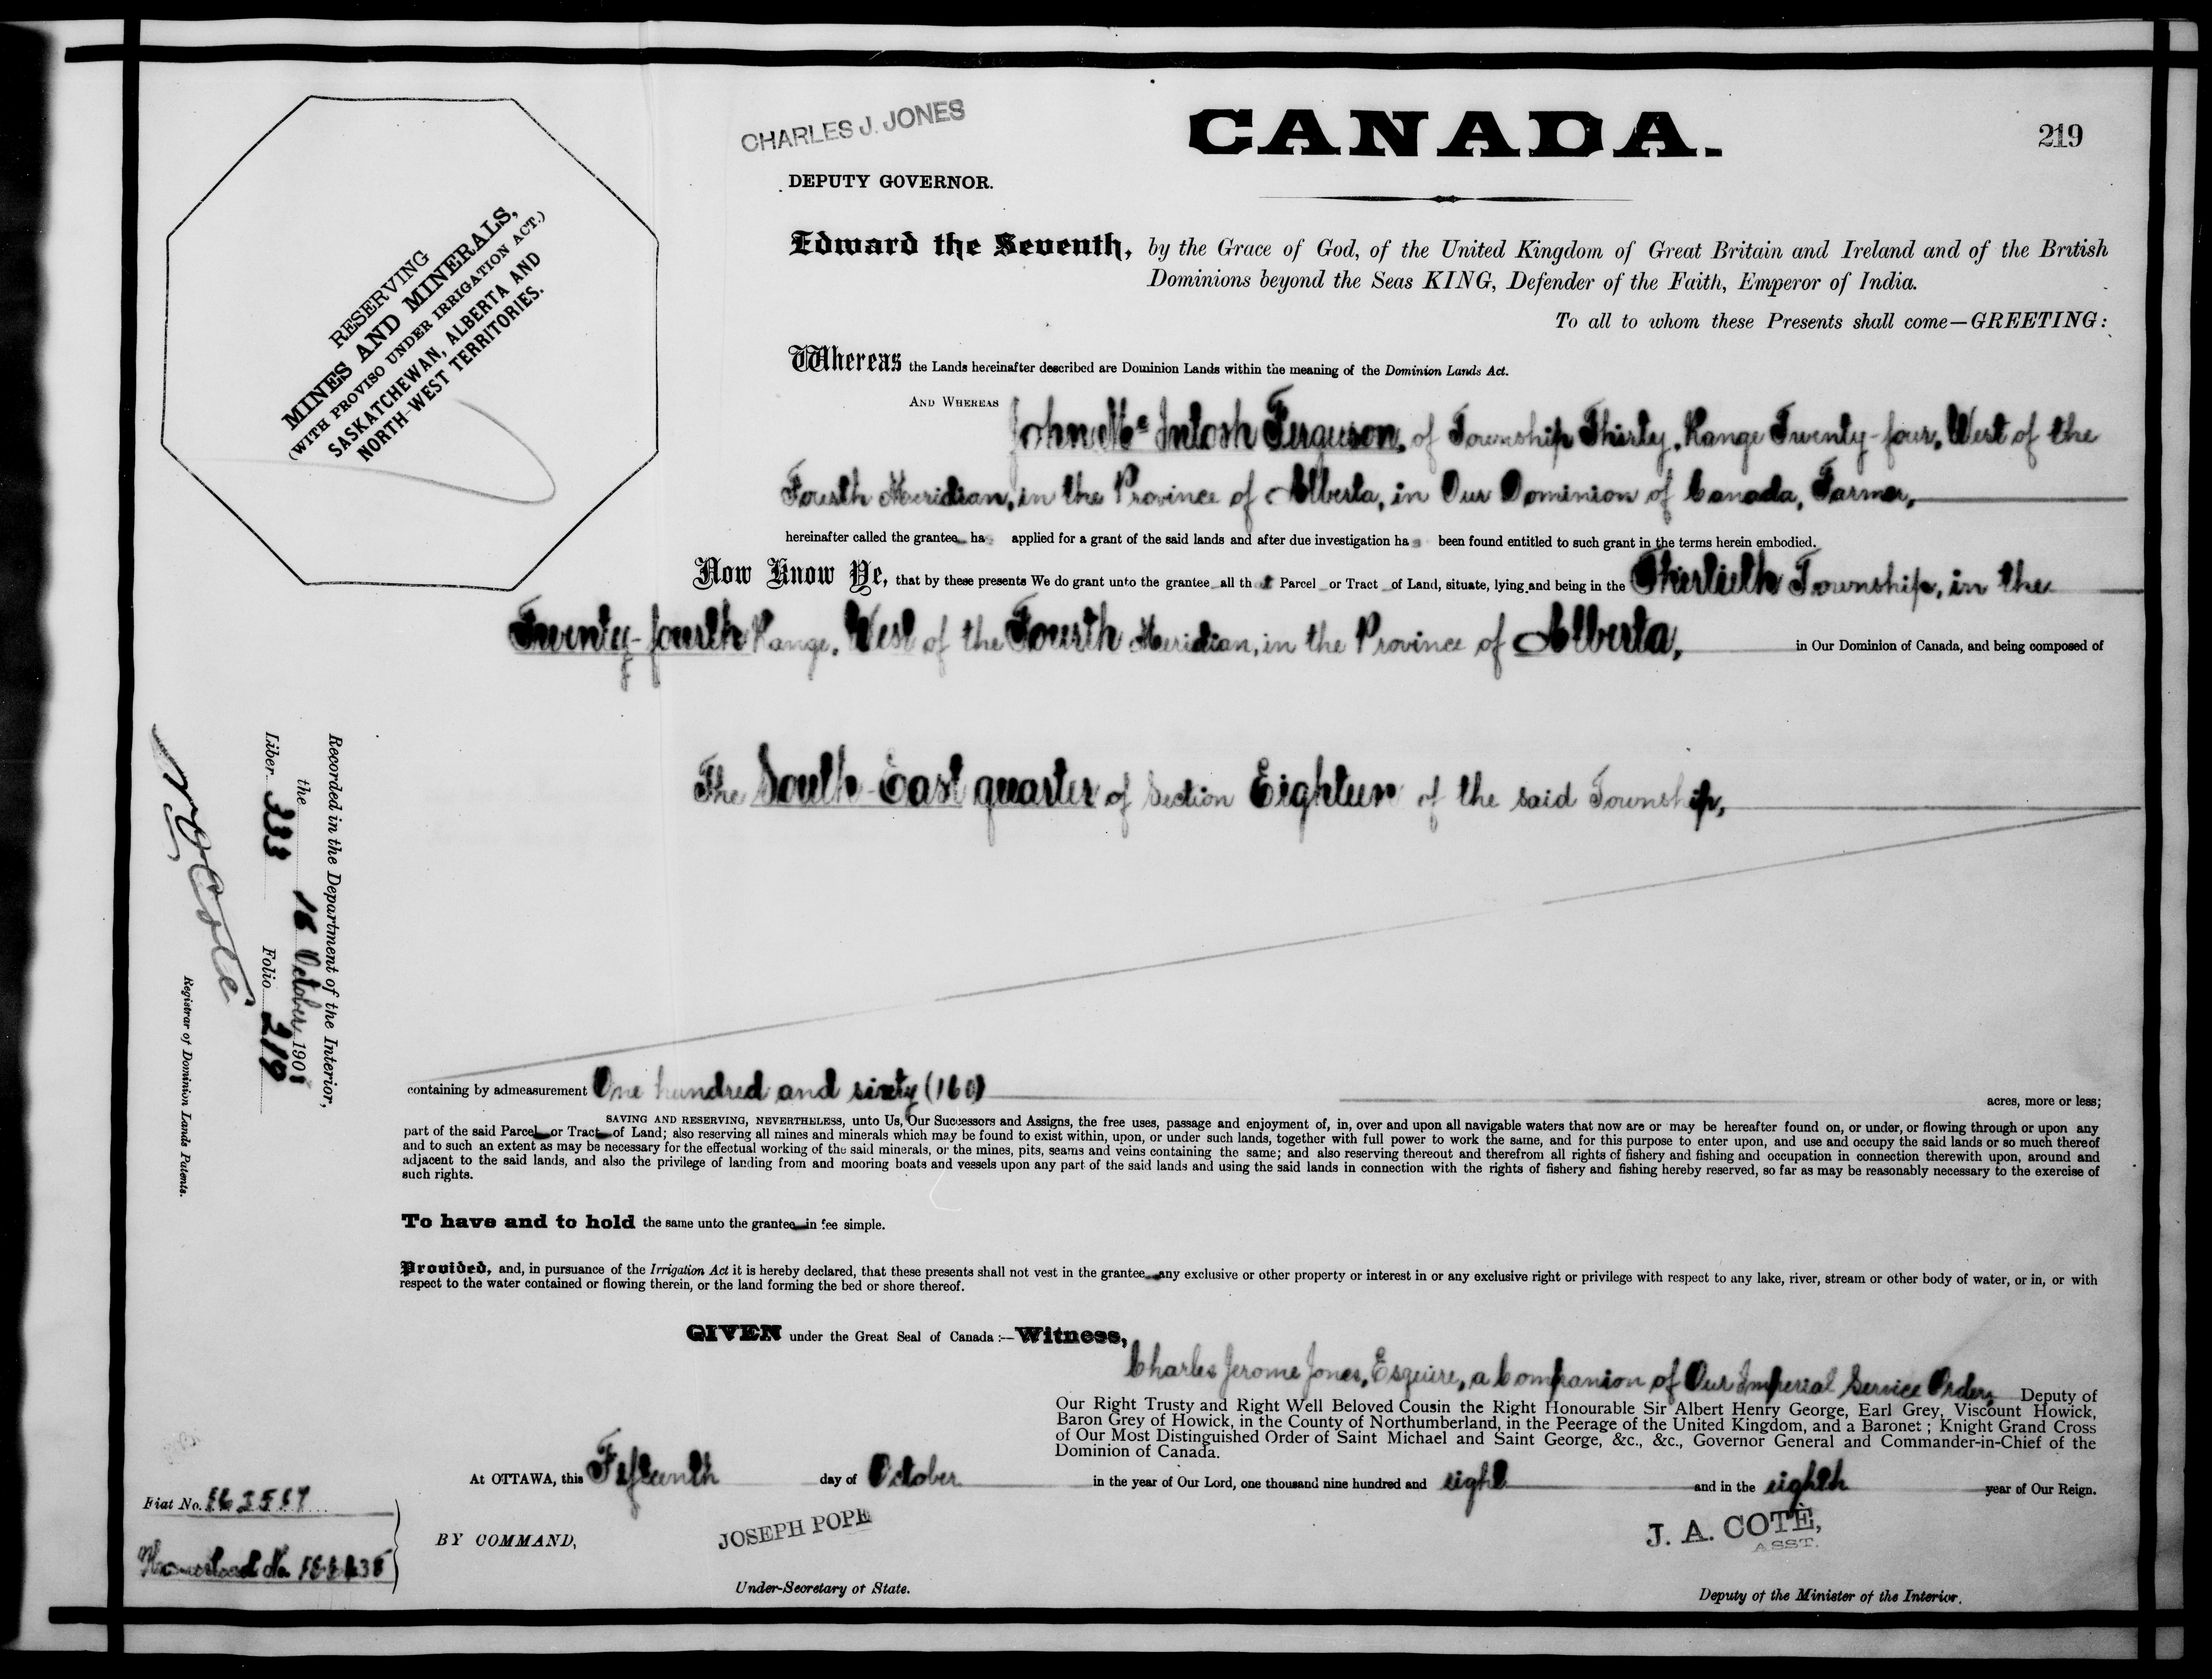 CHARLES J. JONES
CANADA.
219
DEPUTY GOVERNOR.
RESERVING
MINES AND MINERALS,
(WITH PROVISO UNDER IRRIGATION ACT.)
SASKATCHEWAN, ALBERTA AND
NORTH-WEST TERRITORIES.
Edward the Seventh, by the Grace of God, of the United Kingdom of Great Britain and Ireland and of the British
Dominions beyond the Seas KING, Defender of the Faith, Emperor of India.
To all to whom these Presents shall come—GREETING:
Whereas the Lands hereinafter described are Dominion Lands within the meaning of the Dominion Lands Act.
AND WHEREAS John Mc Intosh Ferguson, of Township Thirty, Range Twenty-four, West of the
Fourth Meridian, in the Province of Alberta, in Our Dominion of Canada, Farmer,
hereinafter called the grantee has applied for a grant of the said lands and after due investigation has been found entitled to such grant in the terms herein embodied.
Now Know Ye, that by these presents We do grant unto the grantee all that Parcel or Tract of Land, situate, lying and being in the Thirtieth Township, in the
Twenty-fourth Range, West of the Fourth Meridian, in the Province of Alberta, in Our Dominion of Canada, and being composed of
The South-East quarter of Section Eighteen of the said Township,
Recorded in the Department of the Interior,
the 16 October 1908
Liber 333 Folio 219
N O Coté
Registrar of Dominion Lands Patents.
containing by admeasurement One hundred and sixty (160) acres, more or less;
SAVING AND RESERVING, NEVERTHELESS, unto Us, Our Successors and Assigns, the free uses, passage and enjoyment of, in, over and upon all navigable waters that now are or may be hereafter found on, or under, or flowing through or upon any
part of the said Parcel or Tract of Land; also reserving all mines and minerals which may be found to exist within, upon, or under such lands, together with full power to work the same, and for this purpose to enter upon, and use and occupy the said lands or so much thereof
and to such an extent as may be necessary for the effectual working of the said minerals, or the mines, pits, seams and veins containing the same; and also reserving thereout and therefrom all rights of fishery and fishing and occupation in connection therewith upon, around and
adjacent to the said lands, and also the privilege of landing from and mooring boats and vessels upon any part of the said lands and using the said lands in connection with the rights of fishery and fishing hereby reserved, so far as may be reasonably necessary to the exercise of
such rights.
To have and to hold the same unto the grantee in fee simple.
Provided, and, in pursuance of the Irrigation Act it is hereby declared, that these presents shall not vest in the grantee any exclusive or other property or interest in or any exclusive right or privilege with respect to any lake, river, stream or other body of water, or in, or with
respect to the water contained or flowing therein, or the land forming the bed or shore thereof.
GIVEN under the Great Seal of Canada :—Witness,
Charles Jerome Jones, Esquire, a Companion of Our Imperial Service Order, Deputy of
Our Right Trusty and Right Well Beloved Cousin the Right Honourable Sir Albert Henry George, Earl Grey, Viscount Howick,
Baron Grey of Howick, in the County of Northumberland, in the Peerage of the United Kingdom, and a Baronet ; Knight Grand Cross
of Our Most Distinguished Order of Saint Michael and Saint George, &c., &c., Governor General and Commander-in-Chief of the
Dominion of Canada.
At OTTAWA, this Fifteenth day of October in the year of Our Lord, one thousand nine hundred and eight and in the eighth year of Our Reign.
Fiat No.
Homestead No.
BY COMMAND,
JOSEPH POPE
Under-Secretary of State.
J. A. COTÉ,
ASST.
Deputy of the Minister of the Interior.